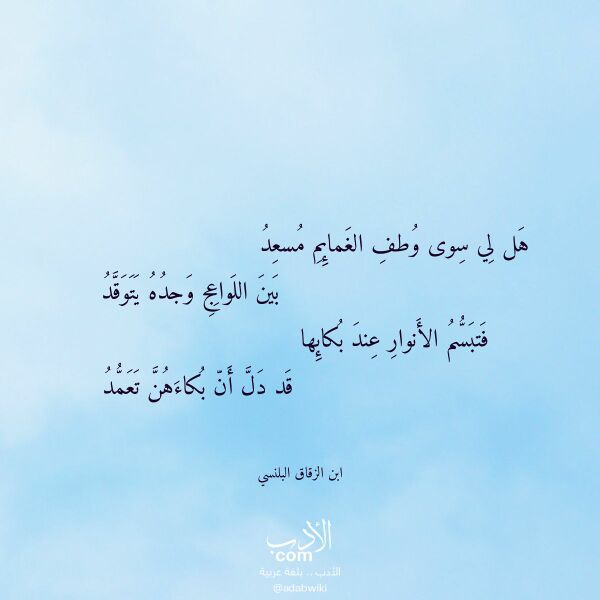 هَل لِي سِوى وُطفِ الغَمايِمِ مُسعِدُ
بَينَ اللَواعِجِ وَجدُهُ يَتَوَقَّدُ
فَتبَسُّمُ الأَنوارِ عِندَ بُكايِها
قَد دَلَّ أَنّ بُكاءَهُنَّ تَعَمُّدُ
ابن الزقاق البلنسي
الأدب
com
الأدب .. بلغة عربية
@adabwiki